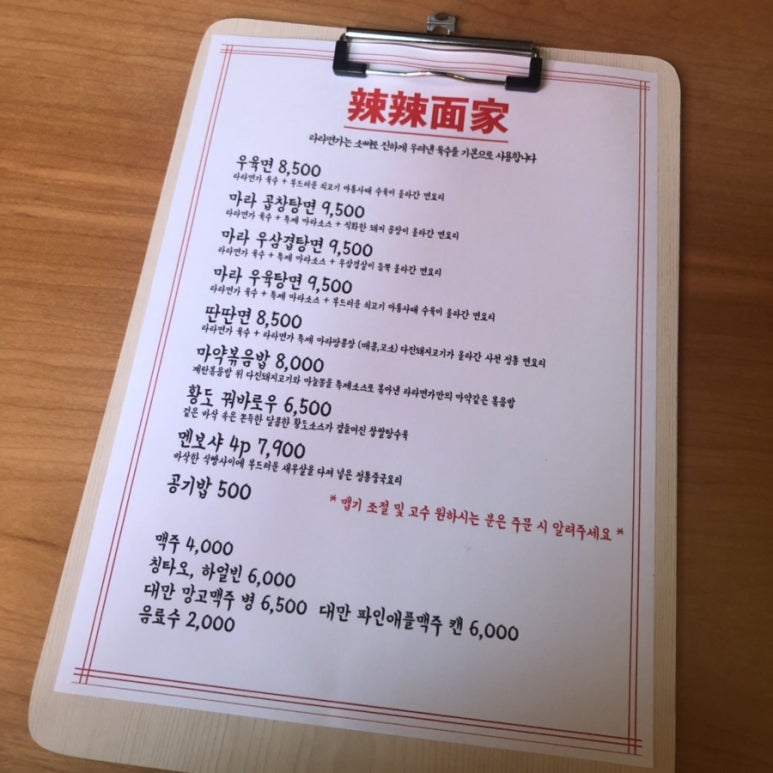 辣辣面家
라라면가는 소뼈로 진하게 우려낸 육수를 기본으로 사용합니다
우육면 8,500
라라면가 육수 + 부드러운 쇠고기 아롱사태 수육이 올라간 면요리
마라 곱창탕면 9,500
라라면가 육수 + 특제 마라소스 + 직화한 돼지 곱창이 올라간 면요리
마라 우삼겹탕면 9,500
라라면가 육수 + 특제 마라소스 + 우삼겹살이 듬뿍 올라간 면요리
마라 우육탕면 9,500
라라면가 육수 + 특제 마라소스 + 부드러운 쇠고기 아롱사태 수육이 올라간 면요리
딴딴면 8,500
라라면가 육수 + 라라면가 특제 마라땅콩장 (매콤,고소) 다진돼지고기가 올라간 사천 정통 면요리
마약볶음밥 8,000
계란볶음밥 위 다진돼지고기와 마늘쫑을 특제소스로 볶아낸 라라면가만의 마약같은 볶음밥
황도 꿔바로우 6,500
겉은 바삭 속은 쫀득한 달콤한 황도소스가 곁들여진 찹쌀탕수육
멘보샤 4p 7,900
바삭한 식빵사이에 부드러운 새우살을 다져 넣은 정통중국요리
공기밥 500
* 맵기 조절 및 고수 원하시는 분은 주문 시 알려주세요 *
맥주 4,000
칭타오, 하얼빈 6,000
대만 망고맥주 병 6,500 대만 파인애플맥주 캔 6,000
음료수 2,000